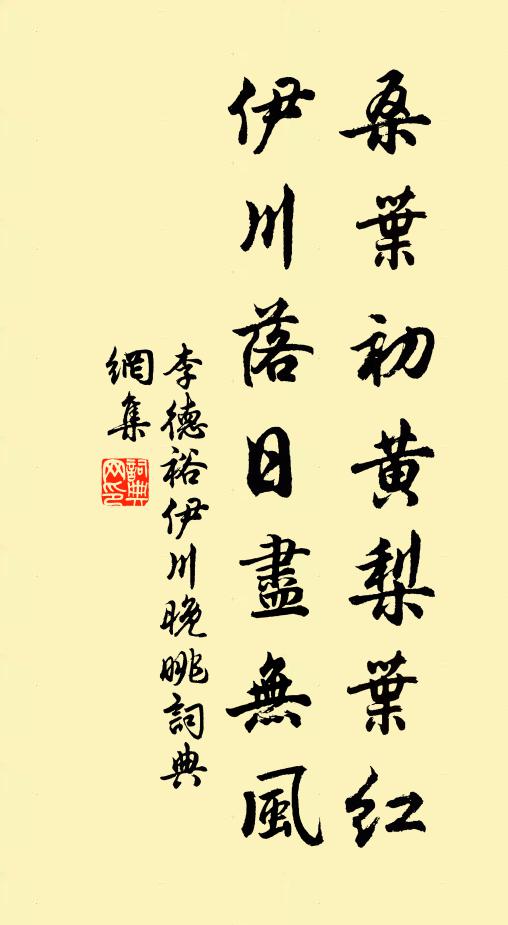 桑葉初黄梨葉紅
伊川落日盡無風
李德裕伊川晚眺詞典
網集
詞典
网印